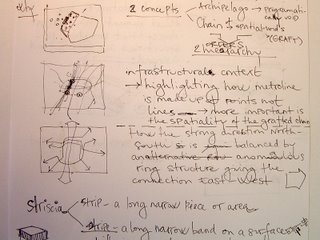 city
2 concepts
Archipelago → programatic void
Chain of spatial nds
(GRAFT)
ORDERS
2 hierarchy
infrastructural context
→ highlighting how metroline
is made up of points not
lines → more important is
the spatiality of the grafted chain
How the strong direction north-
south is balanced by
an anomalous
ring structure giving the
connection East-West
striscia
strip - a long narrow piece or area
stripe - a long narrow band on a surface